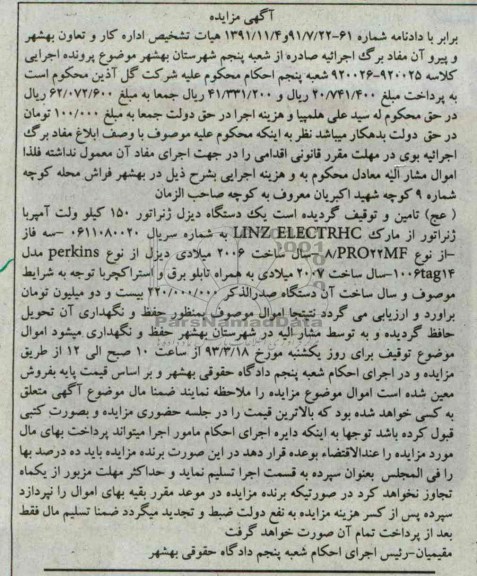 آگهی مزایده
برابر با دادنامه شماره ۶۱-۹۱/۷/۲۲و۱۳۹۱/۱۱/۴ هیات تشخیص اداره کار و تعاون بهشهر
و پیرو آن مفاد برگ اجرائیه صادره از شعبه پنجم شهرستان بهشهر موضوع پرونده اجرایی
کلاسه ۹۲۰۰۲۵-۹۲۰۰۲۶ شعبه پنجم احکام محکوم علیه شرکت گل آذین محکوم است
به پرداخت مبلغ ۲۰/۷۴۱/۴۰۰ ریال و ۴۱/۳۳۱/۲۰۰ ریال جمعا به مبلغ ۶۲/۰۷۲/۶۰۰ ریال
در حق محکوم له سید علی هلمپیا و هزینه اجرا در حق دولت جمعا به مبلغ ۱۰۰/۰۰۰ تومان
در حق دولت بدهکار میباشد نظر به اینکه محکوم علیه موصوف با وصف ابلاغ مفاد برگ
اجرائیه بوی در مهلت مقرر قانونی اقدامی را در جهت اجرای مفاد آن معمول نداشته فلذا
اموال مشار الیه معادل محکوم به و هزینه اجرایی بشرح ذیل در بهشهر فراش محله کوچه
شماره ۹ کوچه شهید اکبریان معروف به کوچه صاحب الزمان
( عج) تامین و توقیف گردیده است یک دستگاه دیزل ژنراتور ۱۵۰ کیلو ولت آمپربا
ژنراتور از مارک LINZ ELECTRHC به شماره سریال ۰۶۱۱۰۸۰۰۲۰ -سه فاز
-از نوع ۸/PRO۲۲MF- سال ساخت ۲۰۰۶ میلادی دیزل از نوع perkins مدل
۱۰۰۶tag۱۴-سال ساخت ۲۰۰۷ میلادی به همراه تابلو برق و استراکچربا توجه به شرایط
موصوف و سال ساخت آن دستگاه صدرالذکر ۲۲۰/۰۰۰/۰۰۰ بیست و دو میلیون تومان
براورد و ارزیابی می گردد نتیجتا اموال موصوف بمنظور حفظ و نگهداری آن تحویل
حافظ گردیده و به توسط مشار الیه در شهرستان بهشهر حفظ و نگهداری میشود اموال
موضوع توقیف برای روز یکشنبه مورخ ۹۳/۳/۱۸ از ساعت ۱۰ صبح الی ۱۲ از طریق
مزایده و در اجرای احکام شعبه پنجم دادگاه حقوقی بهشهر و بر اساس قیمت پایه بفروش
معین شده است اموال موضوع مزایده را ملاحظه نمایند ضمنا مال موضوع آگهی متعلق
به کسی خواهد شده بود که بالاترین قیمت را در جلسه حضوری مزایده و بصورت کتبی
قبول کرده باشد توجها به اینکه دایره اجرای احکام مامور اجرا میتواند پرداخت بهای مال
مورد مزایده را عندالاقتضاء بوعده قرار دهد در این صورت برنده مزایده باید ده درصد بها
را فی المجلس بعنوان سپرده به قسمت اجرا تسلیم نماید و حداکثر مهلت مزبور از یکماه
تجاوز نخواهد کرد در صورتیکه برنده مزایده در موعد مقرر بقیه بهای اموال را نپردازد
سپرده پس از کسر هزینه مزایده به نفع دولت ضبط و تجدید میگردد ضمنا تسلیم مال فقط
بعد از پرداخت تمام آن صورت خواهد گرفت
مقیمیان-رئیس اجرای احکام شعبه پنجم دادگاه حقوقی بهشهر